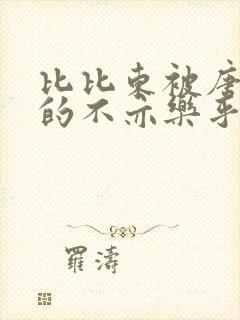 比比东被唐
的不亦樂乎
羅濤